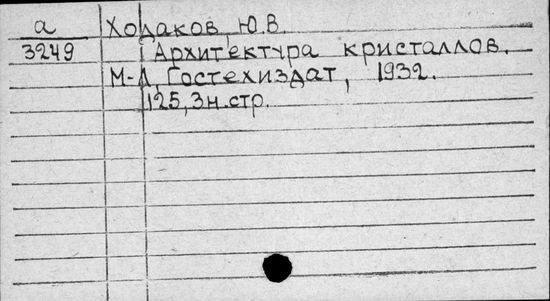 а Ходаков, Ю.В.
3249 Архитектура кристаллов.
М-Л, Гостехиздат, 1932.
125, 3н.стр.